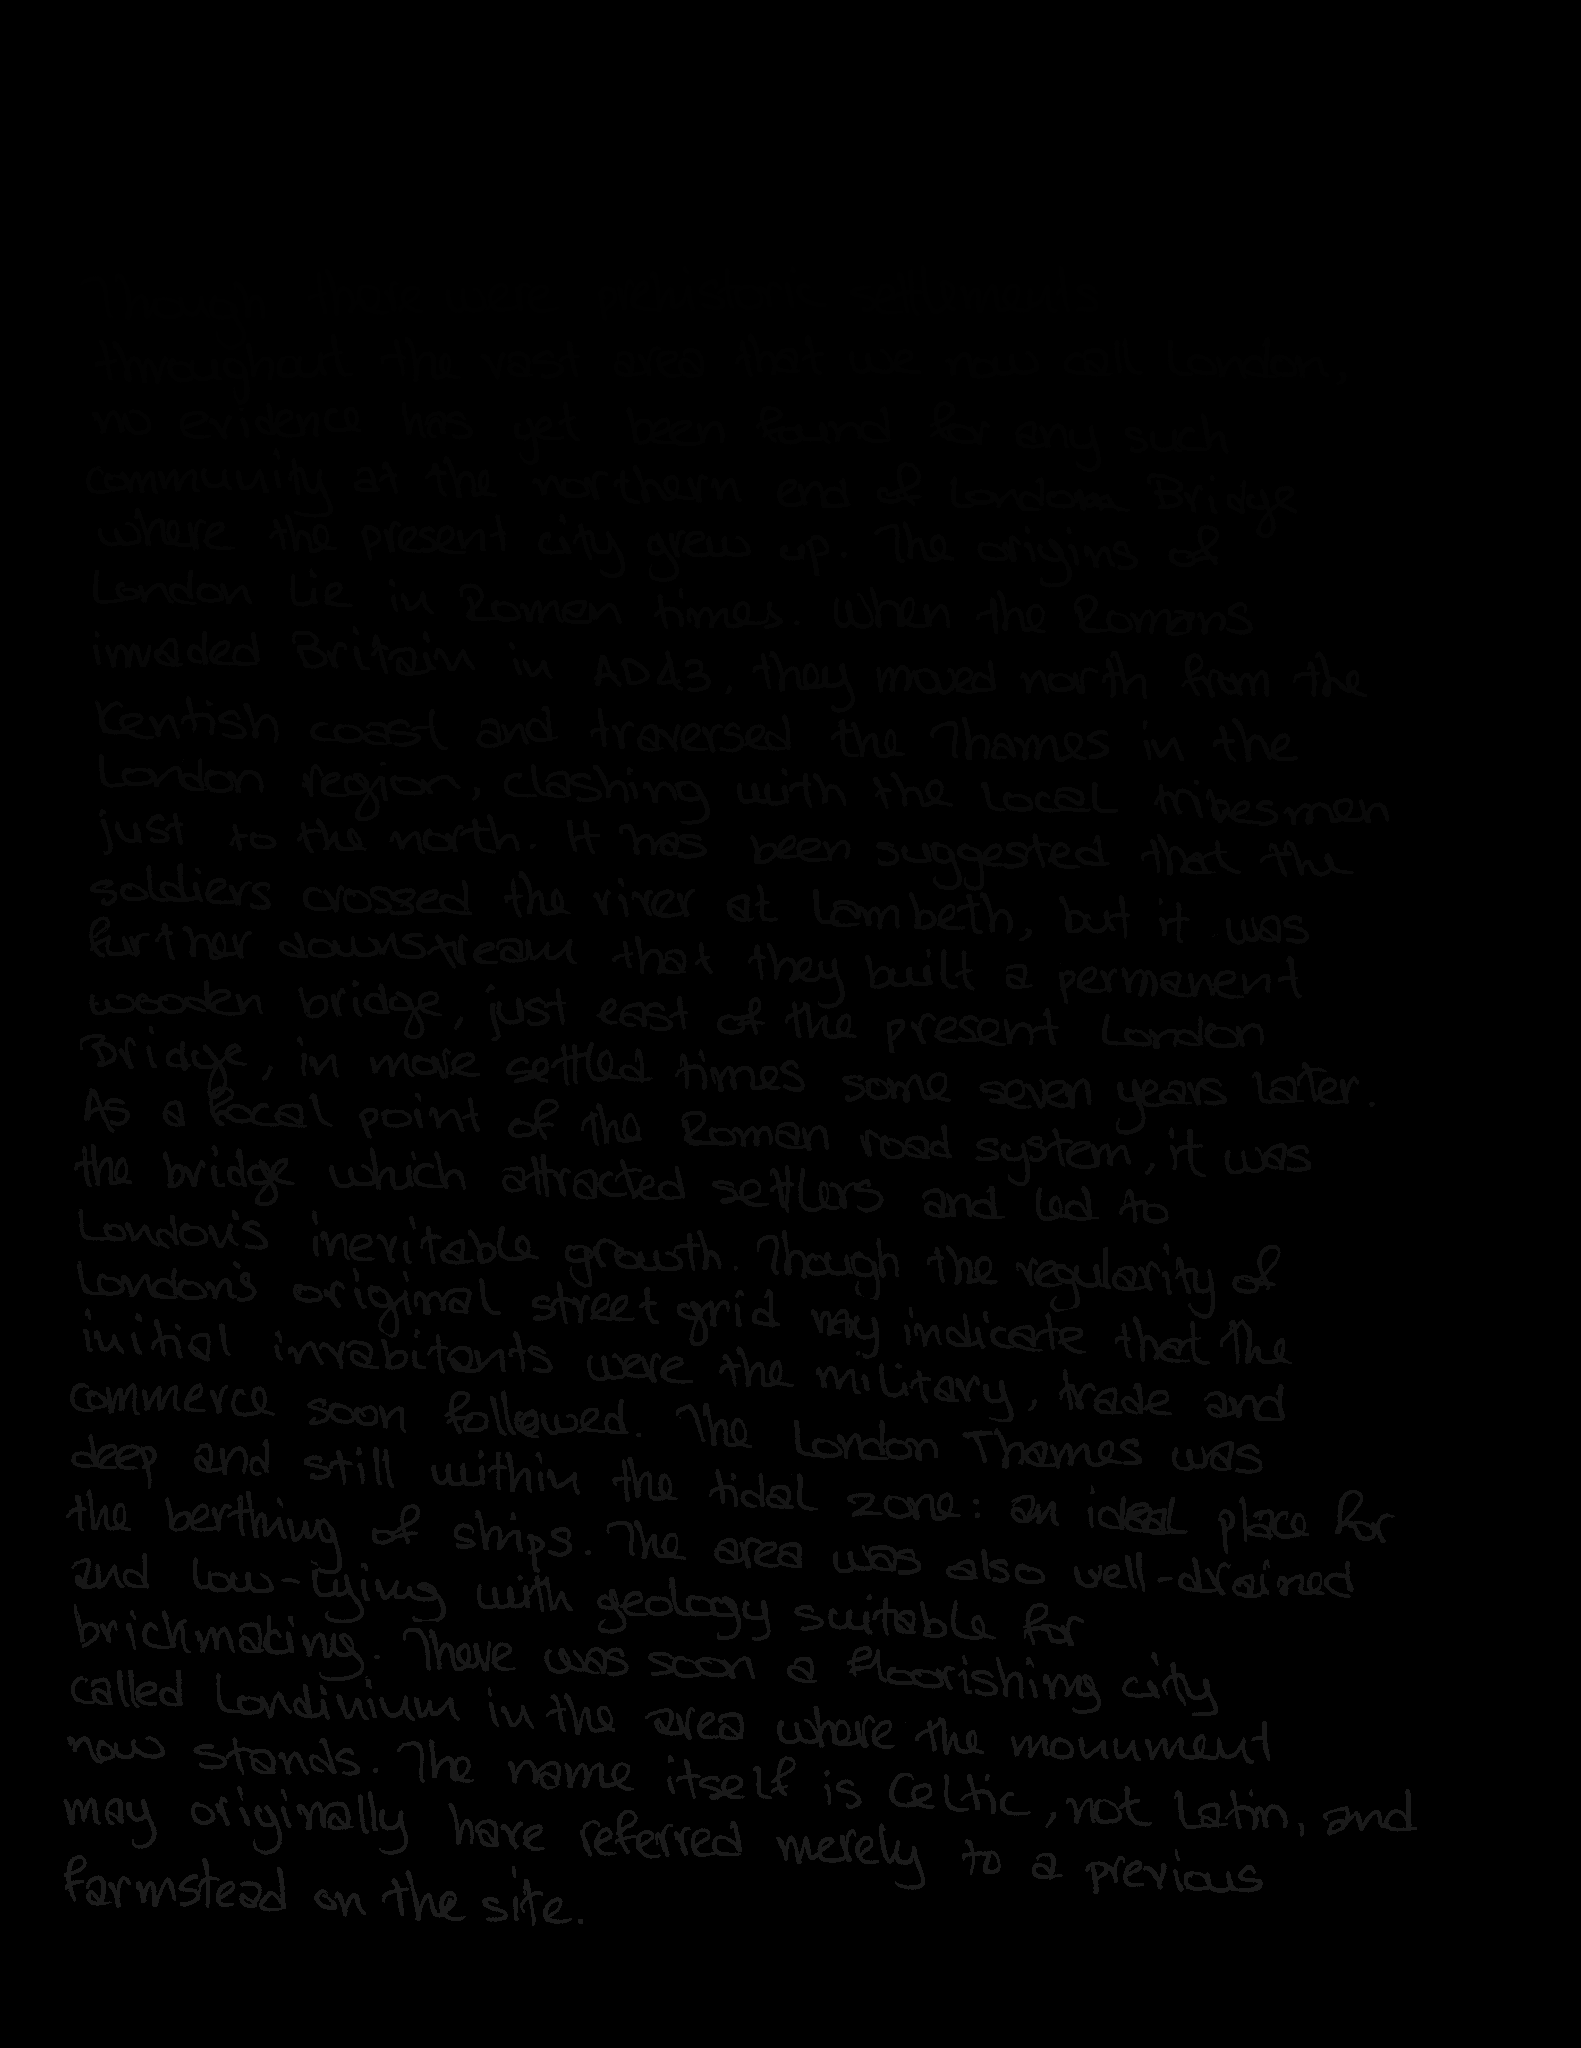 Though there were prehistoric settlements
throughout the vast area that we now call London,
no evidence has yet been found for any such
community at the northern end of London Bridge
where the present city grew up. The origins of
London lie in Roman times. When the Romans
invaded Britain in AD43, they moved north from the
Kentish coast and traversed the Thames in the
London region, clashing with the local tribesmen
just to the north. It has been suggested that the
soldiers crossed the river at Lambeth, but it was
further downstream that they built a permanent
wooden bridge, just east of the present London
Bridge, in more settled times some seven years later.
As a focal point of the Roman road system, it was
the bridge which attracted settlers and led to
London's inevitable growth. Though the regularity of
London's original street grid may indicate that the
initial inrabitants were the military, trade and
commerce soon followed. The London Thames was
deep and still within the tidal zone: an ideal place for
the berthing of ships. The area was also well-drained
and low-lying with geology suitable for
brickmaking. There was soon a floorishing city
called Londinium in the area where the monument
now stands. The name itself is Celtic, not Latin, and
may originally have referred merely to a previous
farmstead on the site.